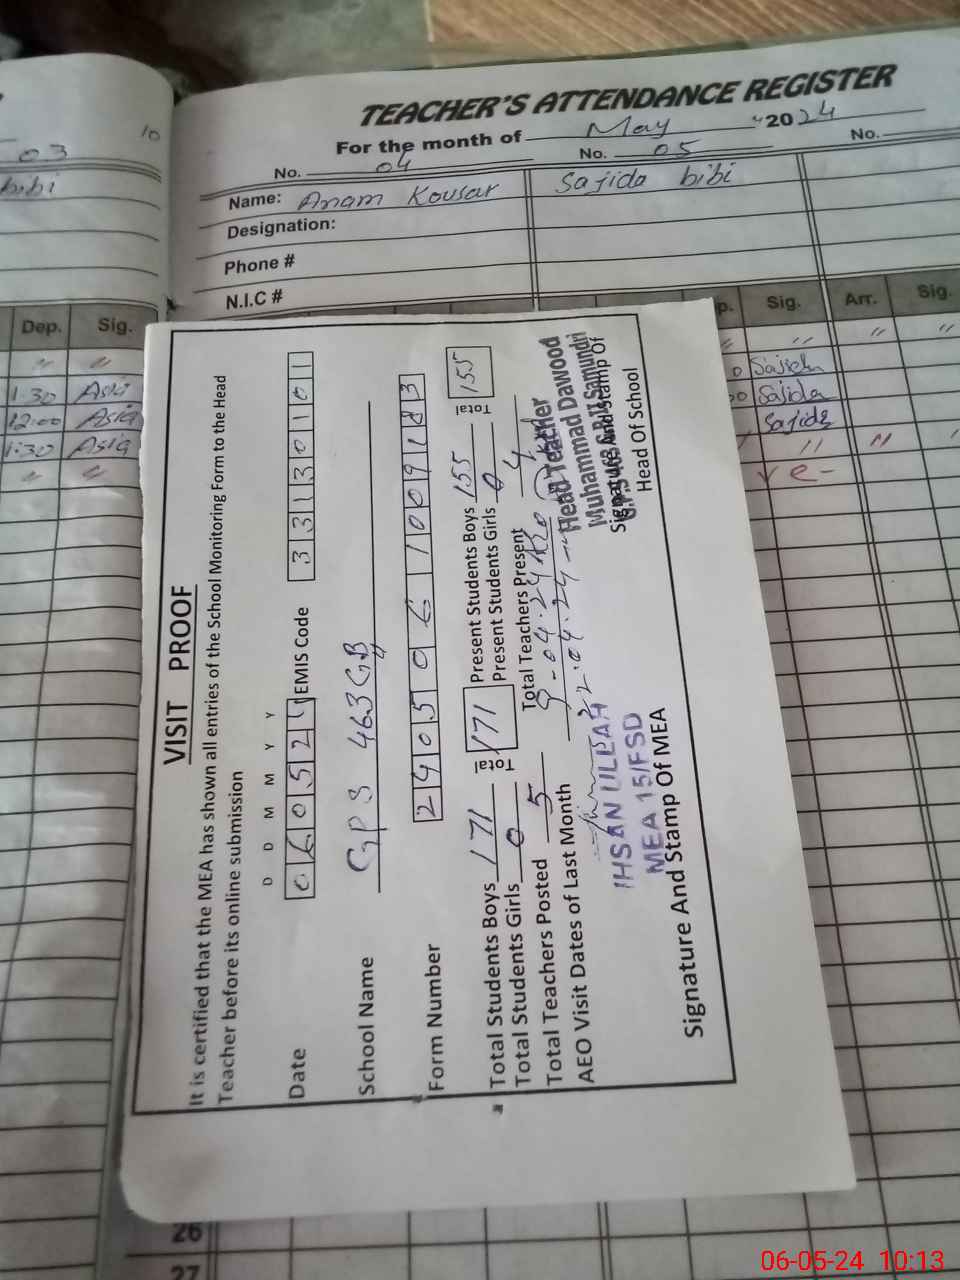 TEACHER'S ATTENDANCE REGISTER
For the month of May 2024
10
03
bibi
No. 04 No. 05 No.
Name: Anam Kousar Sajida bibi
Designation:
Phone #
N.I.C #
Dep. Sig.
p. Sig. Arr. Sig.
" "
1:30 Asia
12:00 Asia
1:30 Asia
" "
Sajida
Sajida
Sajida
VISIT PROOF
It is certified that the MEA has shown all entries of the School Monitoring Form to the Head
Teacher before its online submission
D D M M Y Y
Date 060524 EMIS Code 33130101
School Name GPS 463 GB
Form Number 2405061009183
Total Students Boys 171 Total 171 Present Students Boys 155 Total 155
Total Students Girls 0 Present Students Girls 0
Total Teachers Posted 5 Total Teachers Present 4
AEO Visit Dates of Last Month 9-04-24
22-04-24
IHSAN ULLAH
MEA 15/FSD
Signature And Stamp Of MEA
Head Teacher
Muhammad Dawood
Signature And Stamp Of
Head Of School
26
27
06-05-24 10:13